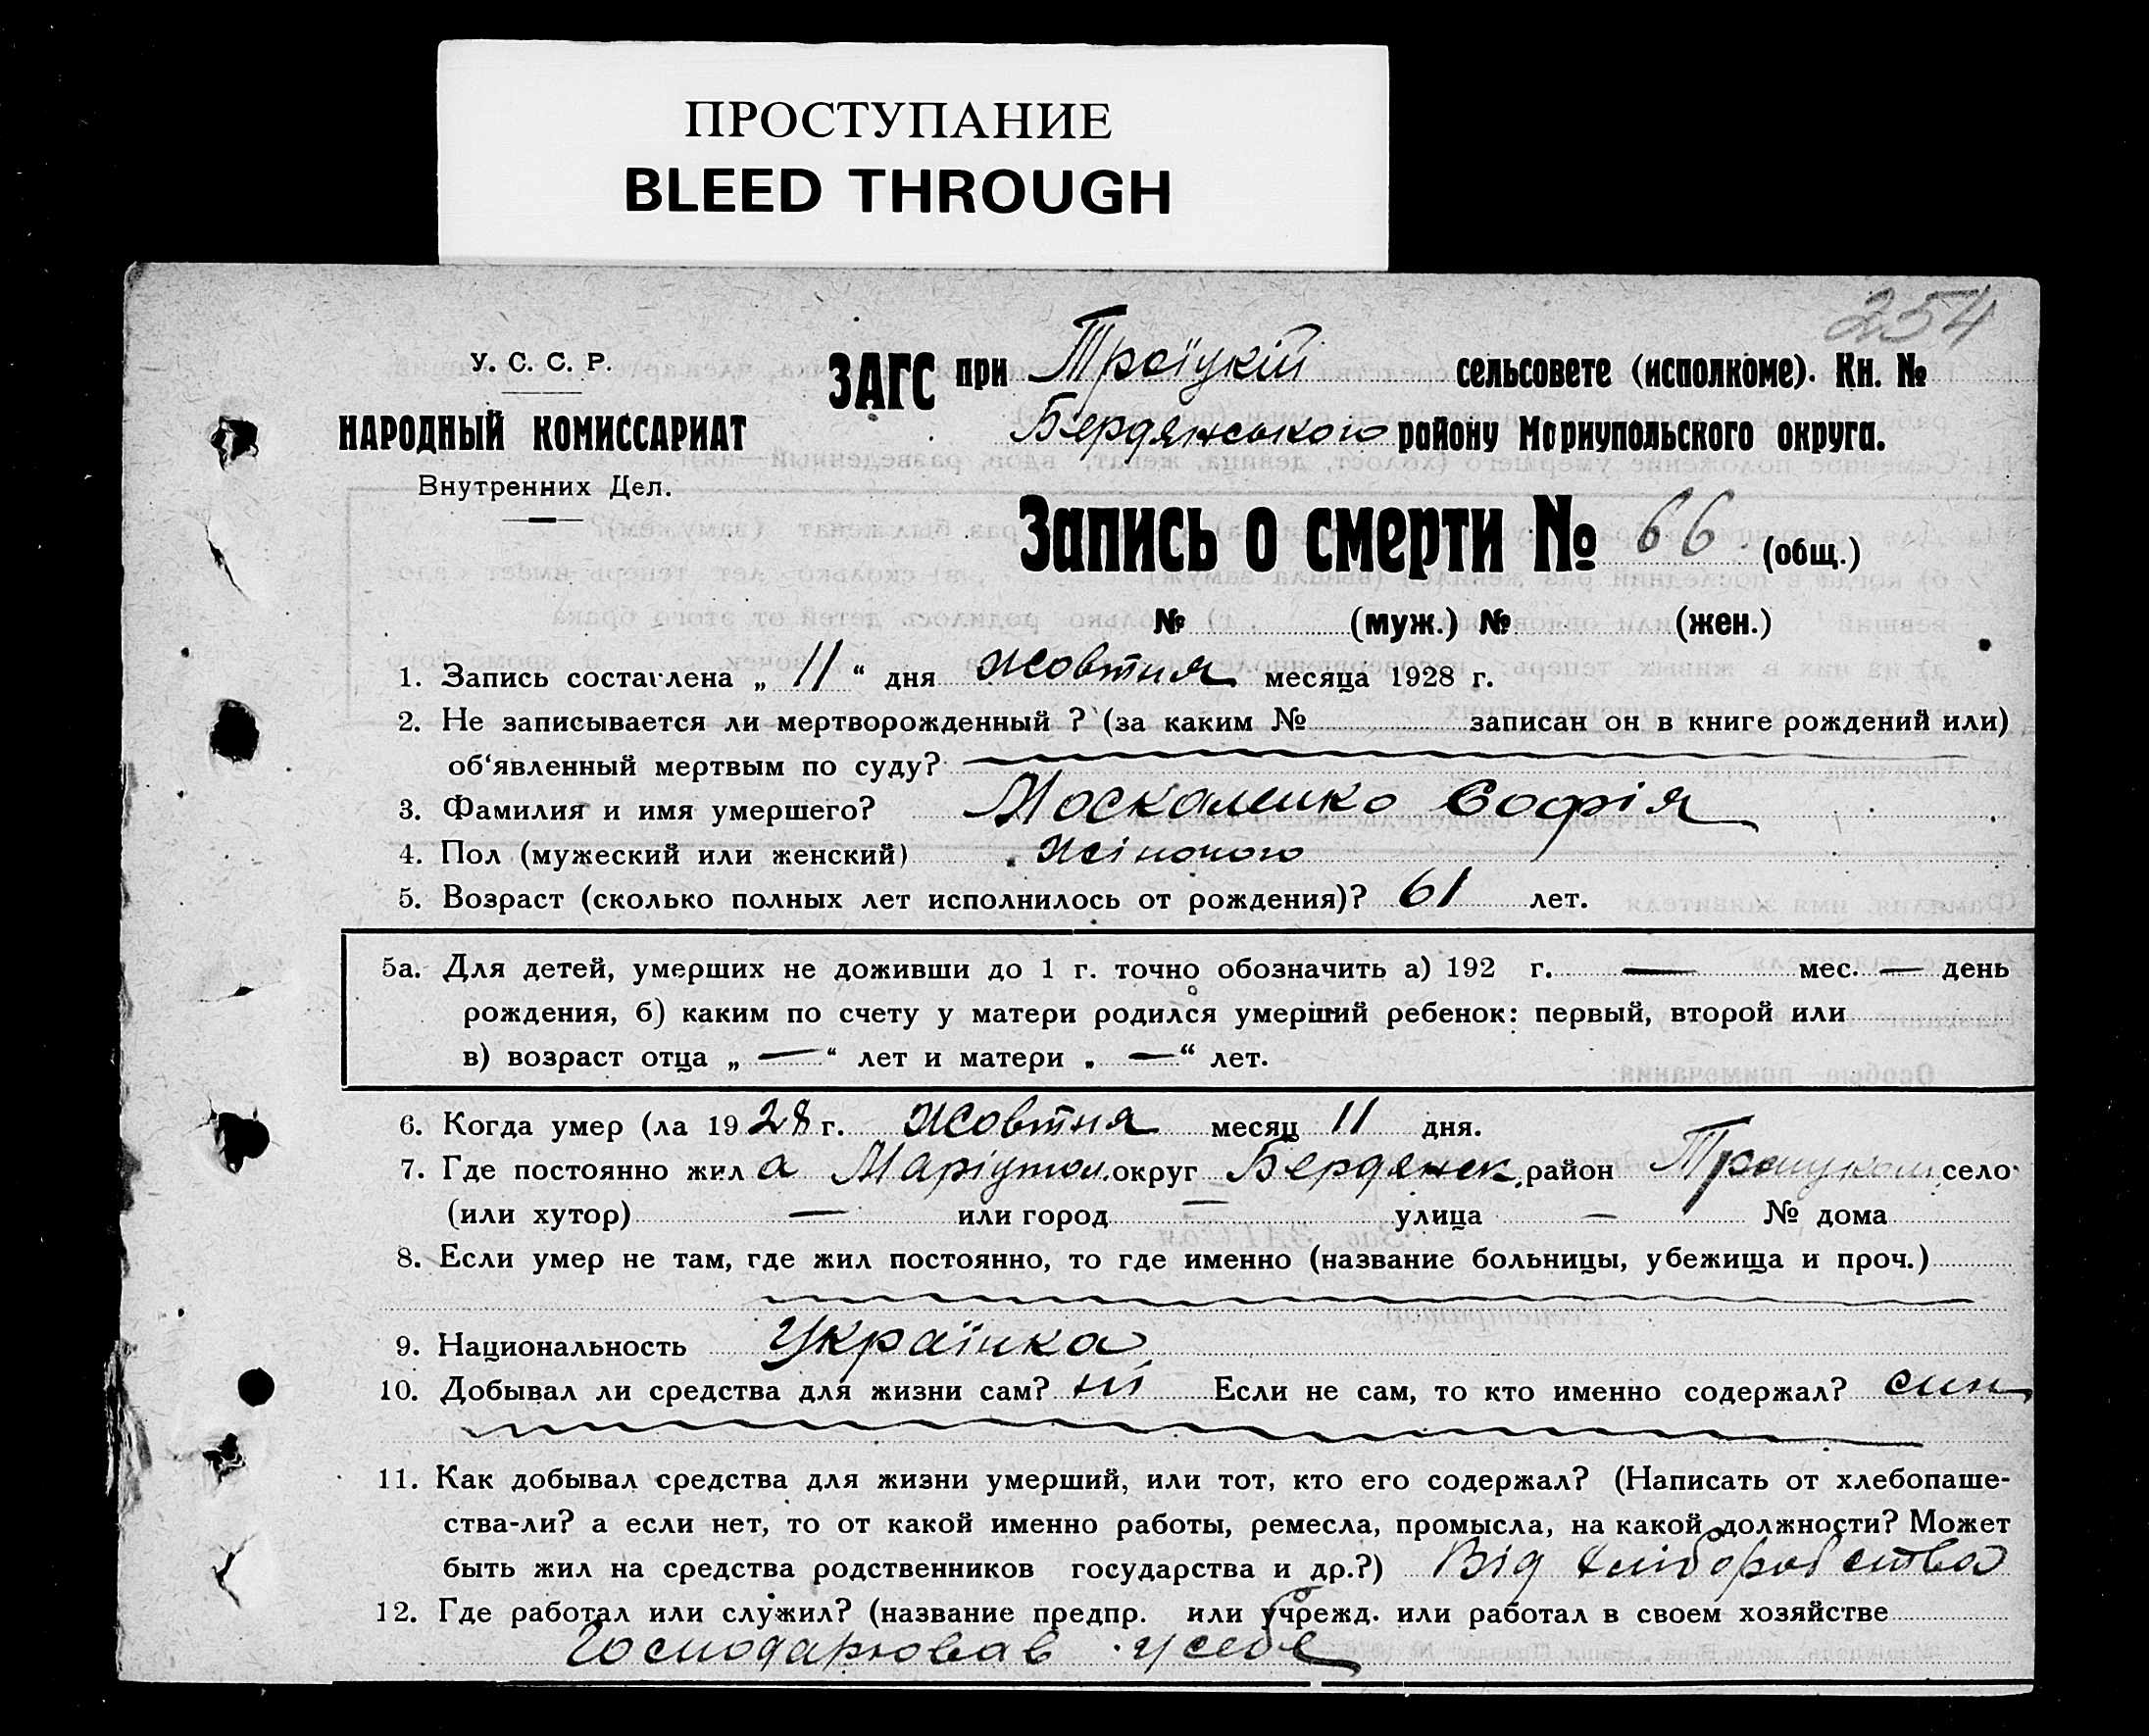 ПРОСТУПАНИЕ
BLEED THROUGH
254
У. С. С. Р.
НАРОДНЫЙ КОМИССАРИАТ
Внутренних Дел.
ЗАГС при Троїцкій сельсовете (исполкоме). Кн. №
Бердянського району Мариупольского округа.
Запись о смерти № 66 (общ.)
№ (муж.) № (жен.)
1. Запись составлена „ 11 “ дня жовтня месяца 1928 г.
2. Не записывается ли мертворожденный ? (за каким № записан он в книге рождений или)
об‘явленный мертвым по суду?
3. Фамилия и имя умершего? Москаленко Софія
4. Пол (мужеский или женский) жіночого
5. Возраст (сколько полных лет исполнилось от рождения)? 61 лет.
5а. Для детей, умерших не доживши до 1 г. точно обозначить а) 192 г. — мес. — день
рождения, б) каким по счету у матери родился умерший ребенок: первый, второй или
в) возраст отца „ — “ лет и матери „ — “ лет.
6. Когда умер (ла 1928 г. жовтня месяц 11 дня.
7. Где постоянно жила Маріупол. округ Бердянск. район село
(или хутор) — или город — улица — № дома
8. Если умер не там, где жил постоянно, то где именно (название больницы, убежища и проч.)
9. Национальность Українка
10. Добывал ли средства для жизни сам? ні Если не сам, то кто именно содержал? син
11. Как добывал средства для жизни умерший, или тот, кто его содержал? (Написать от хлебопаше-
ства-ли? а если нет, то от какой именно работы, ремесла, промысла, на какой должности? Может
быть жил на средства родственников государства и др.?) Від хліборобства
12. Где работал или служил? (название предпр. или учрежд. или работал в своем хозяйстве
Господарював у себе